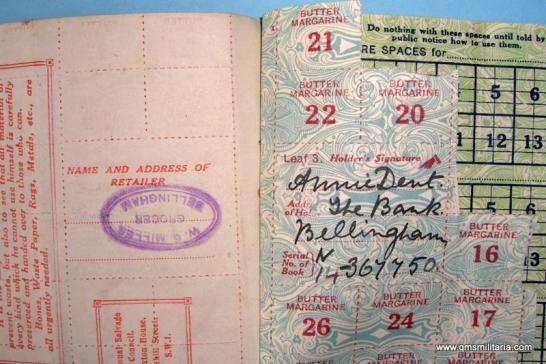 present waste, but also to see that all material of
every kind which he cannot use himself is carefully
preserved and handed over to those who can.
Bones, Waste Paper, Rags, Metals, etc., are
all urgently needed.
NAME AND ADDRESS OF
RETAILER
W. S. MILLER
GROCER
BELLINGHAM
Salvage
Council,
House,
Street,
S.W.1.
BUTTER
MARGARINE
21
BUTTER
MARGARINE
22
BUTTER
MARGARINE
20
Leaf 3. Holder's Signature
Annie Dent.
Address
The Bank.
Bellingham
Serial
No. of
Book
N
14 367750.
BUTTER
MARGARINE
16
BUTTER
MARGARINE
26
BUTTER
MARGARINE
24
BUTTER
MARGARINE
17
Do nothing with these spaces until told by
public notice how to use them.
RE SPACES for
5 6
12 13
www.qmsmilitaria.com